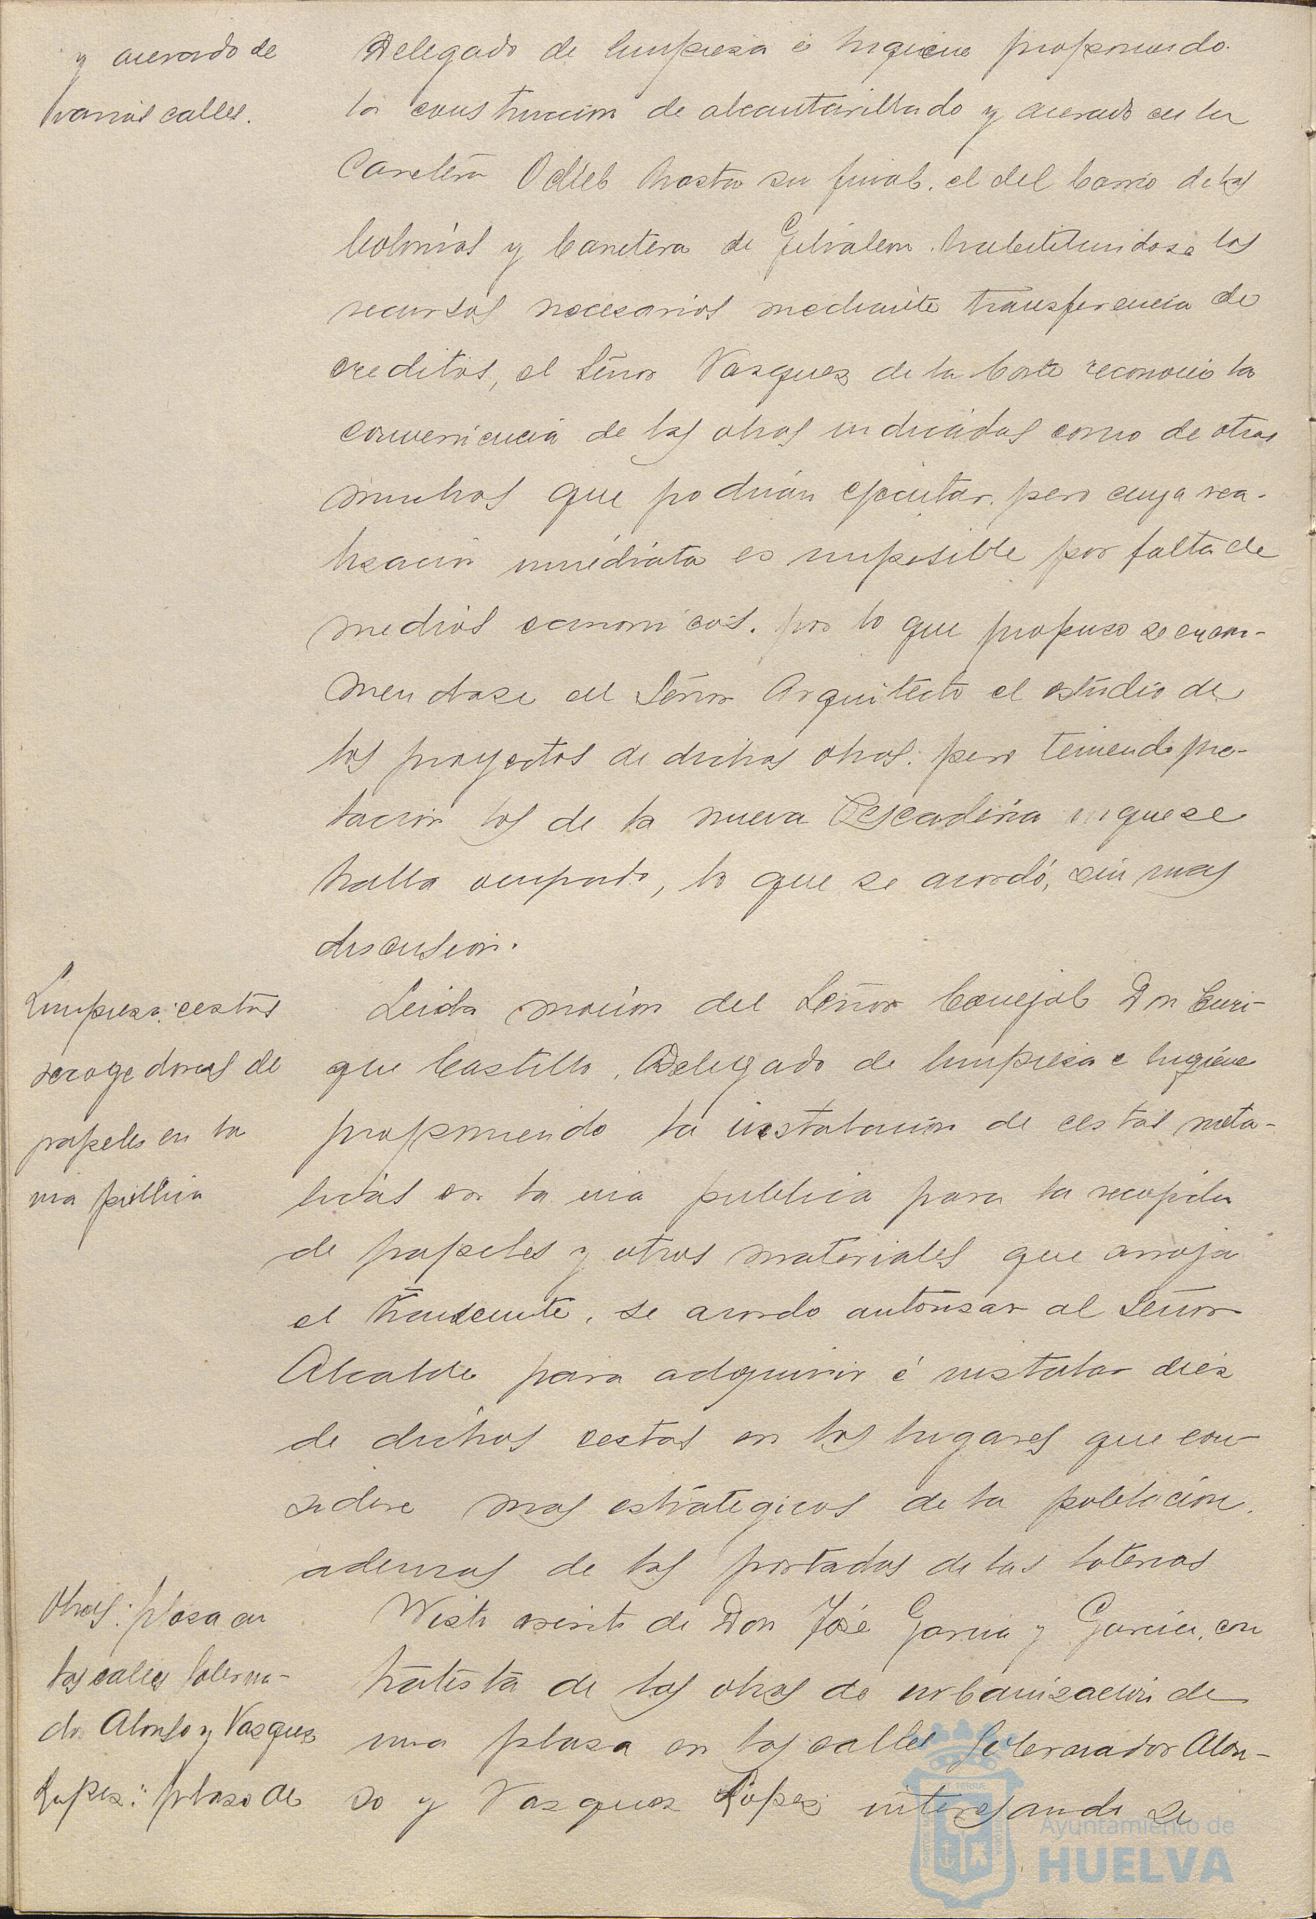 y acerado de
varias calles.
Delegado de limpieza é higiene proponiendo
la construccion de alcantarillado y acerado en la
Carretera Odiel hasta su final, el del barrio de las
Colonias y Carretera de Gibraleon habilitandose los
recursos necesarios mediante transferencia de
creditos, el Señor Vazquez de la Corte reconoció la
conveniencia de las obras indicadas como de otras
muchas que podrian ejecutar, pero cuya rea-
lizacion inmediata es imposible por falta de
medios economicos, por lo que propuso se encar-
mendase al Señor Arquitecto el estudio de
los proyectos de dichas obras, pero teniendo pre-
lacion los de la nueva Pescaderia en que se
halla ocupado, lo que se acordó, sin mas
discusion.
Limpieza: cestas
recogedoras de
papeles en la
via publica
Leida mocion del Señor Concejal Don Enri-
que Castillo, Delegado de limpieza e higiene
proponiendo la instalacion de cestas meta-
licas en la via publica para la recogida
de papeles y otros materiales que arroja
el transeunte, se acordo autorizar al Señor
Alcalde para adquirir é instalar diez
de dichas cestas en los lugares que con-
sidere mas estrategicos de la poblacion,
ademas de las portadas de las loterias
Obras: plaza en
las calles Goberna-
dor Alonso y Vazquez
Lopez: plazo de
Visto escrito de Don José Garcia y Garcia, con
tratista de las obras de urbanizacion de
una plaza en las calles Gobernador Alon-
so y Vazquez Lopez interesando se
Ayuntamiento de
HUELVA